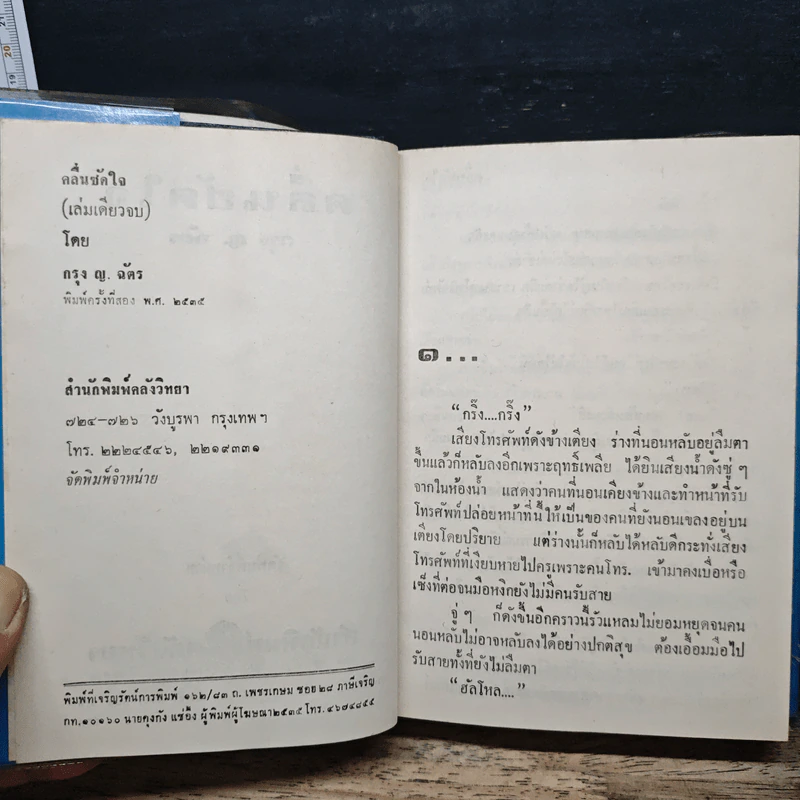 คลื่นซัดใจ
(เล่มเดียวจบ)
โดย
กรุง ญ. ฉัตร
พิมพ์ครั้งที่สอง พ.ศ. ๒๕๓๕
สำนักพิมพ์คลังวิทยา
๗๒๔–๗๒๖ วังบูรพา กรุงเทพฯ
โทร. ๒๒๒๔๕๔๖, ๒๒๑๙๓๓๑
จัดพิมพ์จำหน่าย
พิมพ์ที่เจริญรัตน์การพิมพ์ ๑๖๒/๘๓ ถ. เพชรเกษม ซอย ๒๘ ภาษีเจริญ
กท.๑๐๑๖๐ นายคุงกัง แซ่อึ้ง ผู้พิมพ์ผู้โฆษณา๒๕๓๕ โทร. ๔๖๗๔๘๕๕
๑...
“กริ๊ง....กริ๊ง”
เสียงโทรศัพท์ดังข้างเตียง ร่างที่นอนหลับอยู่ลืมตา
ขึ้นแล้วก็หลับลงอีกเพราะฤทธิ์เพลีย ได้ยินเสียงน้ำดังซู่ ๆ
จากในห้องน้ำ แสดงว่าคนที่นอนเคียงข้างและทำหน้าที่รับ
โทรศัพท์ปล่อยหน้าที่นี้ให้เป็นของคนที่ยังนอนเขลงอยู่บน
เตียงโดยปริยาย แต่ร่างนั้นก็หลับได้หลับดีกระทั่งเสียง
โทรศัพท์ที่เงียบหายไปครู่เพราะคนโทร. เข้ามาคงเบื่อหรือ
เซ็งที่ต่อจนมือหงิกยังไม่มีคนรับสาย
จู่ ๆ ก็ดังขึ้นอีกคราวนี้รัวแหลมไม่ยอมหยุดจนคน
นอนหลับไม่อาจหลับลงได้อย่างปกติสุข ต้องเอื้อมมือไป
รับสายทั้งที่ยังไม่ลืมตา
“ฮัลโหล....”
19
20
21